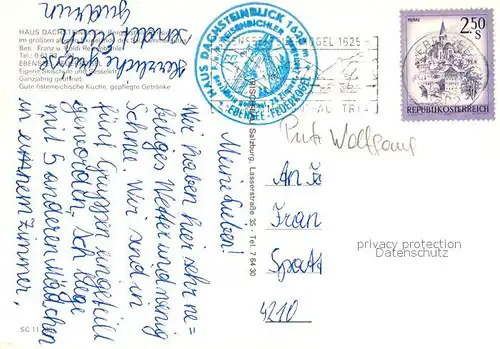 Meine Lieben!
Wir haben hier sehr ne=
beliges Wetter und wenig
Schnee. Wir sind in
fünf Gruppen eingeteilt
geworden, Ich liege
mit 5 anderen Mädchen
in einem Zimmer,
Herzliche Grüße
sendet Euch
Gudrun
HAUS DACHSTEINBLICK 1625 m
EBENSEE - FEUERKOGEL
HAUS DACHSTEIN
Bes. Franz u. Poldi Reisenbichler
Eigene Skischule und
Ganzjährig geöffnet
Gute österreichische Küche, gepflegte Getränke
EBENSEE
KOGEL 1625
Salzburg, Lasserstraße 35 - Tel. 7 64 30
SC 11
MURAU
2.50
S
REPUBLIK ÖSTERREICH
Wolfgang
An Fa
Fran
4210
privacy protection
Datenschutz